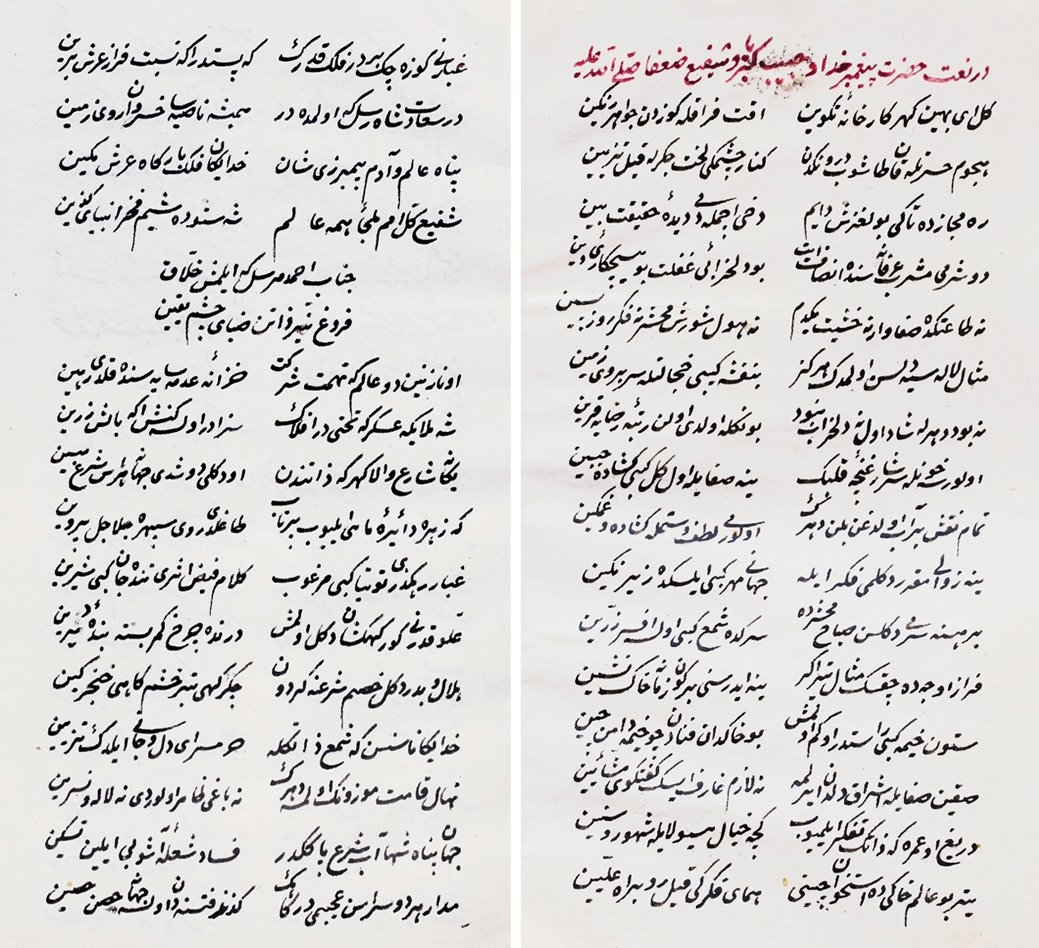 در نعت حضرت پیغمبر خدا حبیب کبریا و شفیع ضعفا صلی الله علیه
کل ای بهین کهر کارخانهٔ تکوین اقت فراقله کوزدن جواهر رنکین
هجوم حسرتله قان طاشوب درونکدن کنار چشمکی لخت جکرله قیل تزیین
ره مجازده تا کی بو لغزش دایم دخی اجملدی دیدهٔ حقیقت بین
دوشرمی مشرب عرفانه سنده انصاف ایت بودلخرائی غفلت بو هیچکارئ دین
نه طاعتکده صفا وار نه خشیت یکدم نه هول شورش محشر نه فکر روز پسین
مثال لاله سیه دلسن اولمدک هرکز بنفشه کبی خجالتله سر بروی زمین
نه بود دهرله شاد اول نه دلخراب نبود بونکله اولدی اولن رتبه رضایه قرین
اولور شه خونله سرشار غنچهٔ قلبک ینه صفایله اول کل کبی کشاده جبین
تمام نقش بر آب اولدیغن بلن دهرک اولورمی لطف و ستمله کشاده و غمکین
ینه زوالی مقرر دکلمی فکر ایله جهانی مهر کبی ایلسک ده زیر نکین
برهنه سرمی دکلسن صباح محشرده سرکده شمع کبی اولسه افسر زرین
فراز اوجه ده چیقسک مثال تیر اکر ینه ایدر سنی بر کون زمانه خاک نشین
ستون خیمه کبی راستدر او کم اولمش بو خاکدان فنادن چو خیمه دامن چین
صقین صفایله اشراق دلدن ایرلمه نه لازم عارف ایسک کفتکوی مشائین
دریغ او عمره که ذاتک تفکر ایلمیوب کچه خیال هیولا ایله شهور و سنین
یتر بو عالم خاکیده استخوان چینی همای فکرکی قیل رهبر اه علیین
غبارنی کوزه چک بر در فلک قدرک که پستدر اکه نسبت فراز عرش برین
در سعادت شاه رسل که اولمده در همیشه ناصیه سای خسروان روی زمین
پناه عالم و آدم پیمبر ذی شان خدایکان فلک بارکاه عرش مکین
شفیع کل امم ملجأ همه عالم شه ستوده شیم فخر انبیای کزین
جناب احمد مرسل که ایلمش خلاق
فروغ نیر ذاتن ضیای چشم یقین
او نازنین دو عالم که تهمت شرکت خزانهٔ عدمه سایه سنده قلدی رهین
شه ملایکه عسکر که تحتی در افلاک سزادر اولسه کنش اکه بالش زرین
یکانه شارع والا کهر که ذاتندن اودکلی دوشدی جهانه هراس شرع مبین
که زهره دائیرهٔ ماهی ایلیوب پرتاب طاغلدی روی سپهره جلاجل پروین
غبار رهکذری توتیا کبی مرغوب کلام فیض اثری تنده جان کبی شیرین
علو قدرنی کور کهکشان دکل اولمش درنده چرخ کمر بسته بندهٔ دیرین
هلال و بدر دکل خصم شرعنه کردون جکر کهی تبر خشم کاهی خنجر کین
خدایکانا سنسن که شمع ذاتکله حرمسرای دل و جانی ایلدک تزیین
نهال قامت موزونک اولمسه دهرک نه باغی ظاهر اولوردی نه لاله و نسرین
جهان پناه شهاب آب شرع پاککدر فساد شعله اشوبی ایلین تسکین
مدار هر دو سراسن عجبمی درکاهک کذند فتنه دن اولسه جهانه حصن حصین